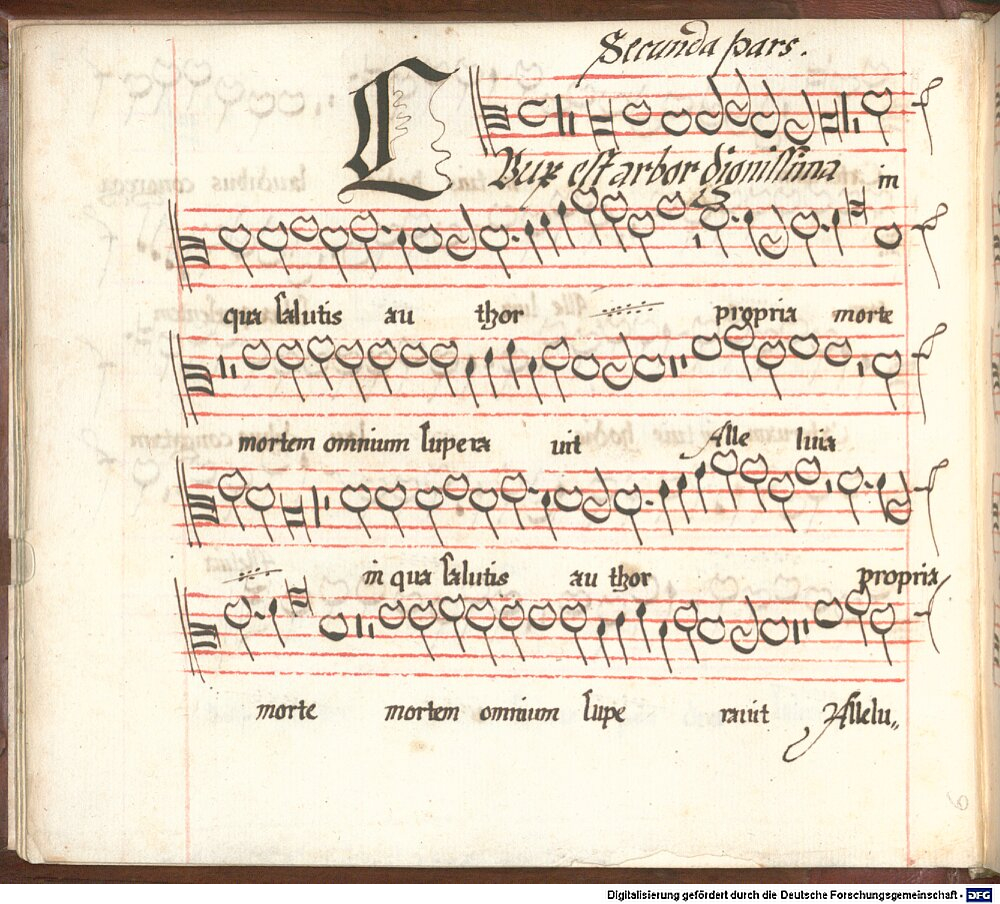 Secunda pars.
CRux est arbor dignissima in
qua salutis au thor propria morte
mortem omnium supera uit Alle luia
in qua salutis au thor propria
morte mortem omnium supe rauit Allelu„
Digitalisierung gefördert durch die Deutsche Forschungsgemeinschaft - DFG